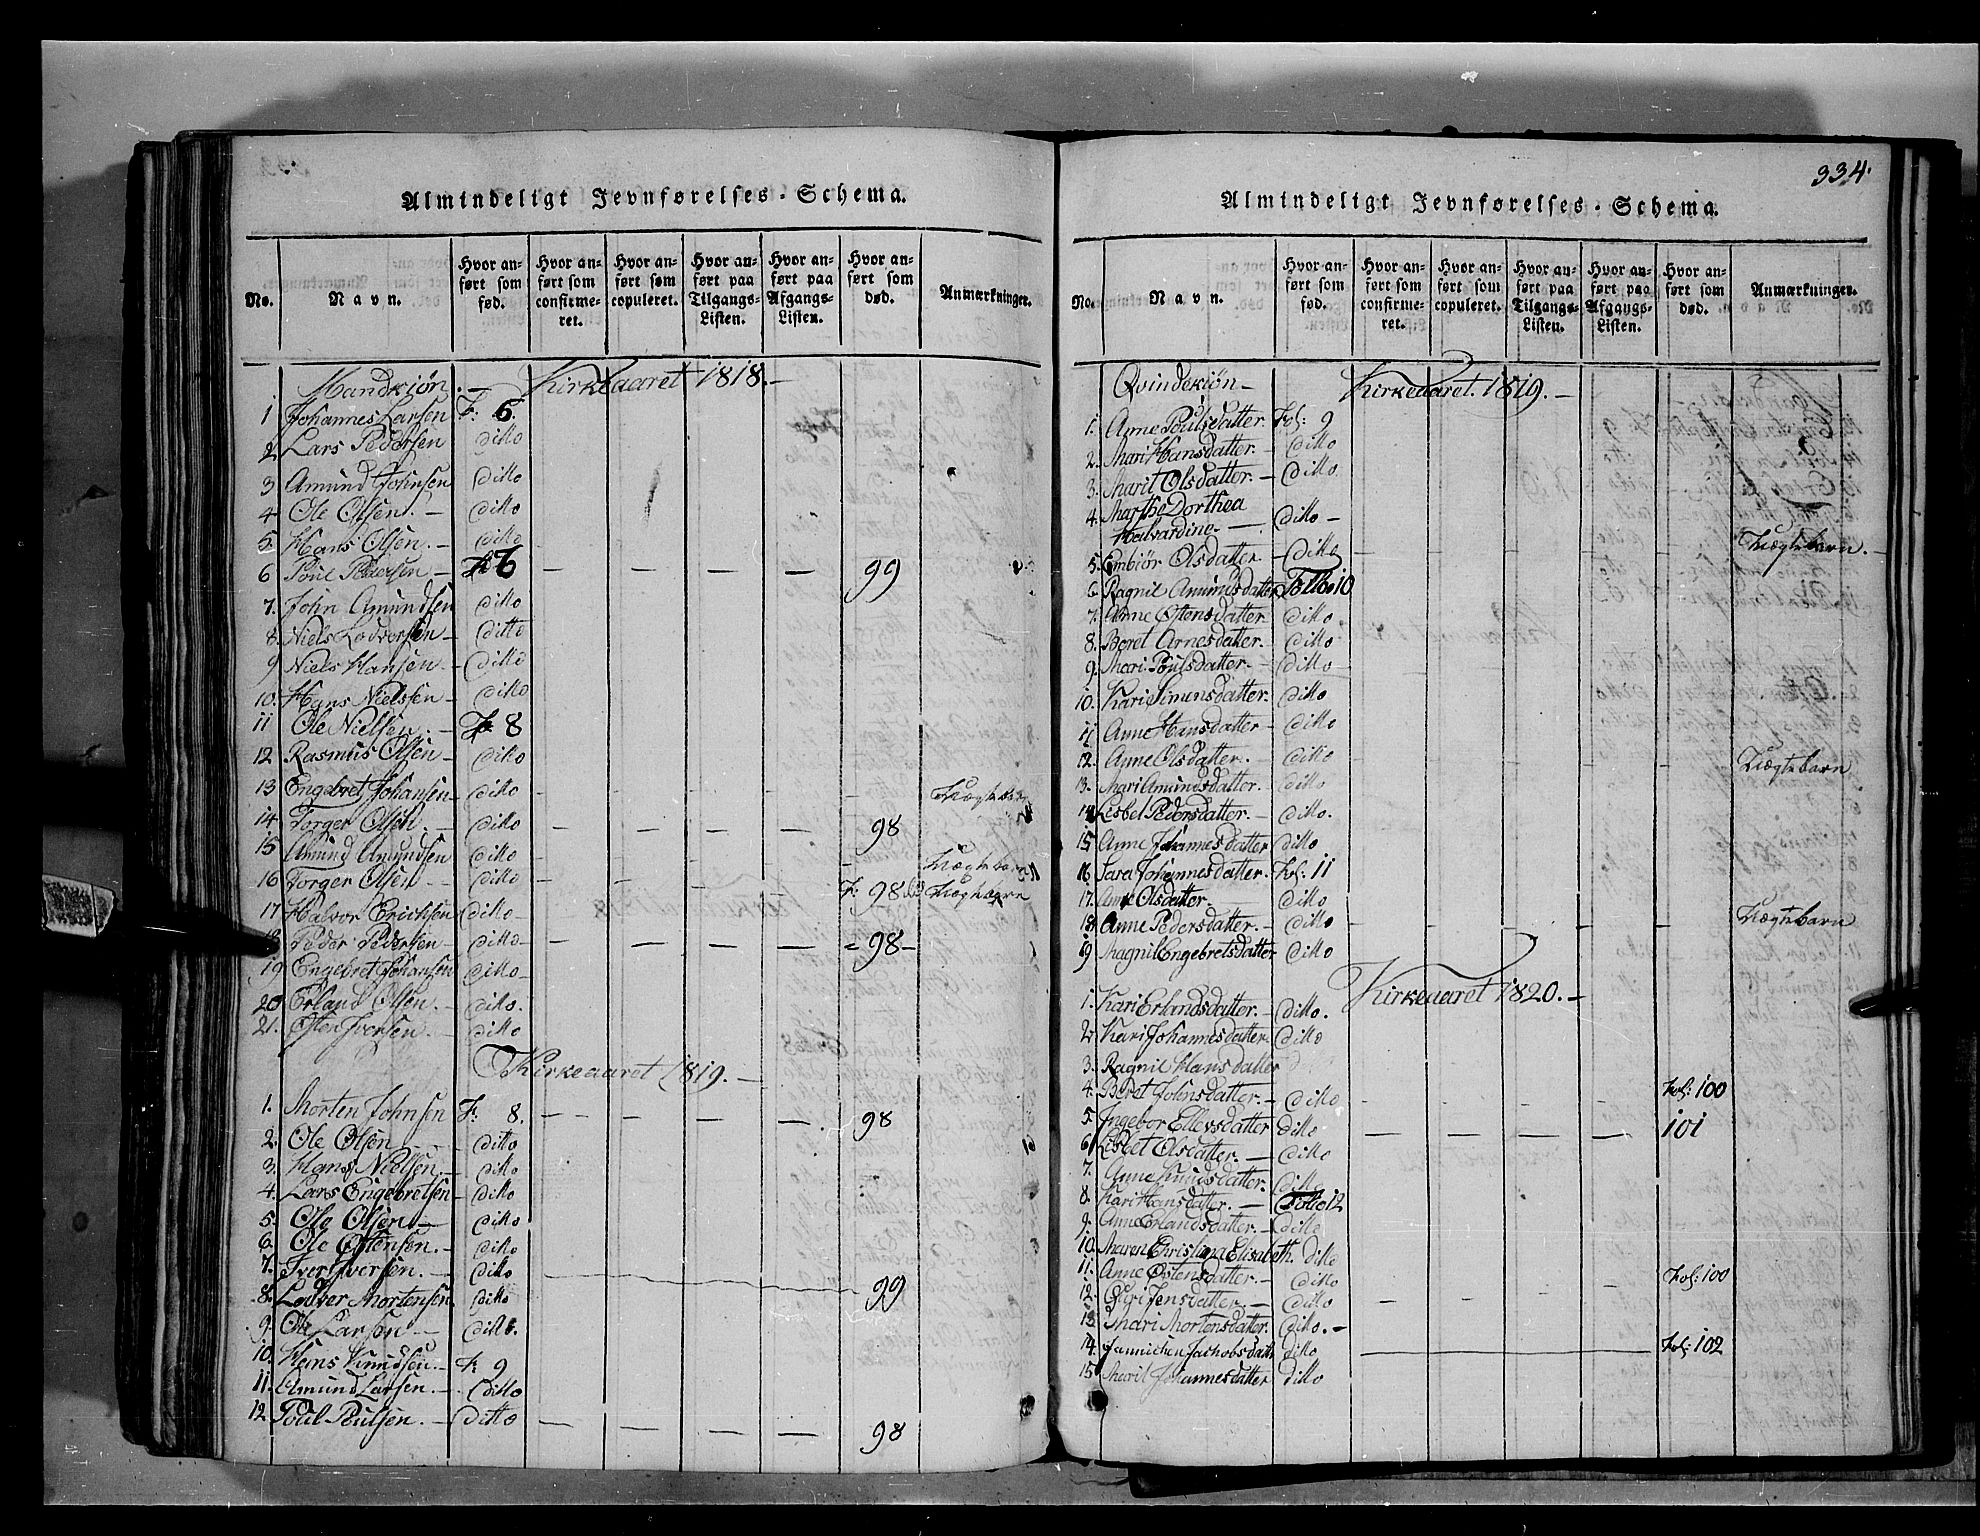 Almindeligt Jevnførelses-Schema.
No. Navn. Hvor anført som fød. Hvor anført som confirmeret. Hvor anført som copuleret. Hvor anført paa Tilgangs-Listen. Hvor anført paa Afgangs-Listen. Hvor anført som død. Anmærkninger.
Mandkiøn. — Kirkeaaret 1818. —
1 Johannes Larsen F: 6.
2 Lars Pedersen ditto
3 Amund Johnsen ditto
4 Ole Olsen. — ditto
5. Hans Olsen. — ditto
6 Poul Pedersen — F 6 — — — — 99
7. John Amundsen ditto
8. Niels Lodvorsen — ditto
9 Niels Hansen. — ditto
10. Hans Nielsen — ditto
11 Ole Nielsen. — F. 8
12 Rasmus Olsen — ditto
13 Engebret Johansen — ditto
14 Torger Olsen. — ditto — — — — 98
15 Amund Amundsen ditto
16 Torger Olsen — ditto F. 98
17 Halvor Erichsen ditto — Uægtebarn
18 Peder Pedersen — ditto — — — — — 98 —
19 Engebret Johansen ditto —
20 Erland Olsen. — ditto.
21. Østen Iversen. — ditto
Kirkeaaret 1819. —
1. Morten Johnsen F. 8. — — — — 98
2. Ole Olsen — ditto
3. Hans Nielsen. — ditto
4. Lars Engebretsen — ditto
5. Ole Olsen — ditto
6. Ole Østensen. — ditto
7. Iver Iversen. — ditto
8. Lodver Mortensen ditto 99
9. Ole Larsen — ditto.
10. Hans Knudsen. — F. 9
11. Amund Larsen. — ditto
12 Poul Poulsen. — ditto — — — — 98
334.
Almindeligt Jevnførelses-Schema.
No. Navn. Hvor anført som fød. Hvor anført som confirmeret. Hvor anført som copuleret. Hvor anført paa Tilgangs-Listen. Hvor anført paa Afgangs-Listen. Hvor anført som død. Anmærkninger.
Qvindekiøn — Kirkeaaret. 1819. —
1. Anne Poulsdatter. Fol: 9
2. Mari Hansdatter. — ditto
3. Marit Olsdatter. — ditto
4. Marthe Dorthea
Halvardine. — ditto —
5. Embiør Olsdatter — ditto Uægtebarn. —
6 Ragnil Amundsdatter Folio 10
7. Anne Østensdatter ditto
8. Beret Arnesdatter. ditto
9. Mari Poulsdatter. — ditto —
10. Kari Simensdatter. ditto
11 Anne Hansdatter — ditto
12. Anne Olsdatter. — ditto Uægtebarn
13. Mari Amundsdatter. ditto
14 Lisbel Pedersdatter. — ditto.
15 Anne Johannesdatter ditto
16 Sara Johannesdatter. Fol: 11
17. Anne Olsdatter — ditto
18 Anne Pedersdatter. — ditto Uægtebarn
19 Magnil Engebretsdatter ditto
Kirkeaaret 1820. —
1. Kari Erlandsdatter. — ditto.
2. Kari Johannesdatter. ditto
3. Ragnil Hansdatter
4. Beret Johnsdatter. — ditto Fol: 100
5. Ingebor Ellevsdatter ditto — — — — 101
6. Lisbet Olsdatter. — ditto
7. Anne Knudsdatter. ditto
8. Kari Hansdatter. — Folio 12
9. Anne Erlandsdatter. — ditto
10. Maren Christina Elisabeth. ditto
11. Anne Østensdatter. — ditto Fol: 100
12. Guri Jensdatter. — ditto
13 Mari Mortensdatter. ditto. —
14. Jannichen Jachobsdatter ditto Fol: 102
15 Marit Johannesdatter ditto